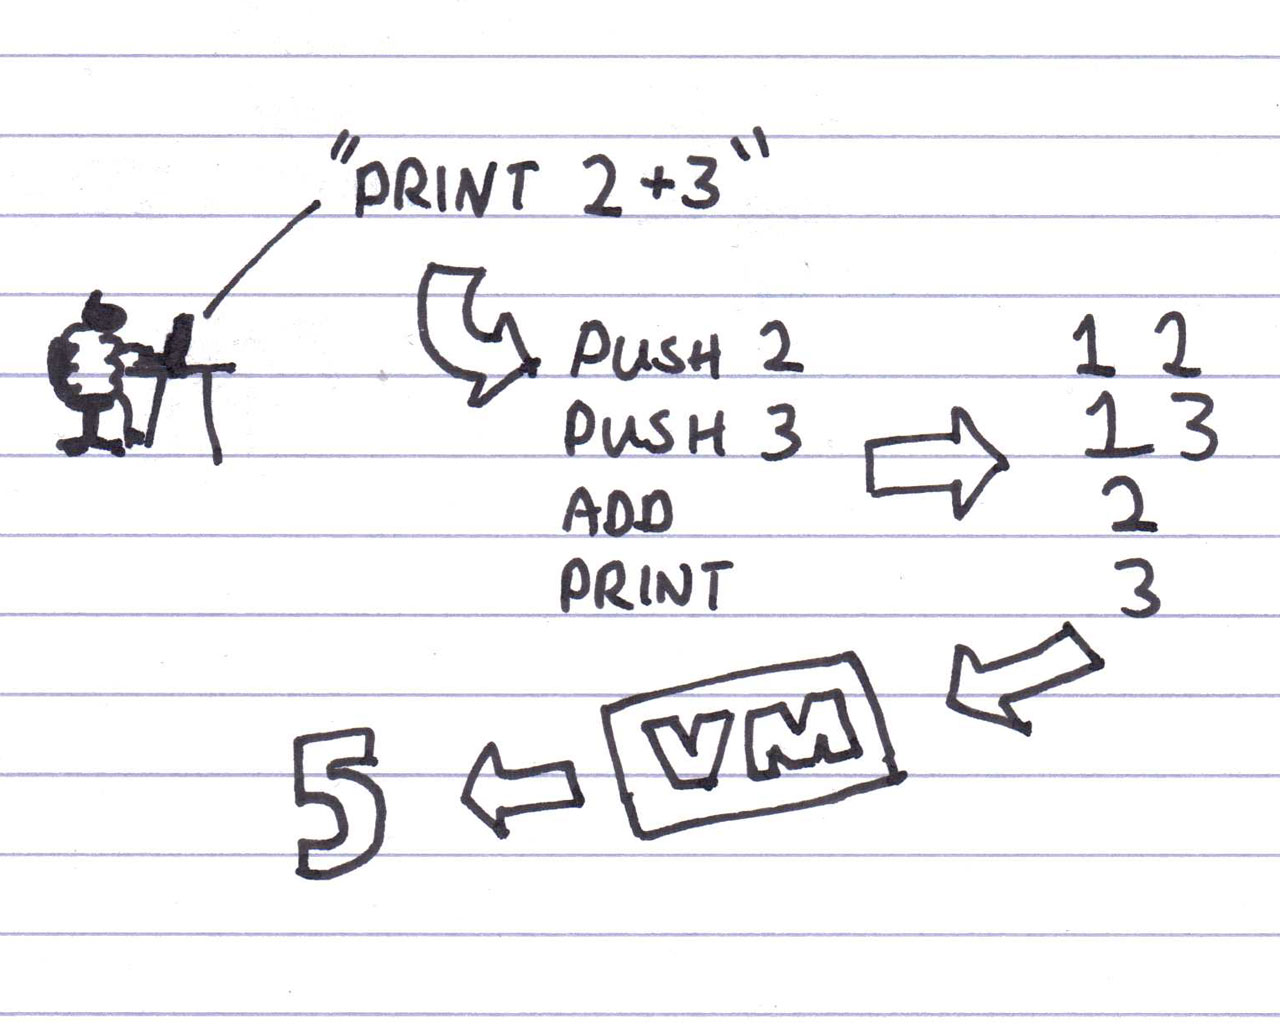 "PRINT 2+3"
PUSH 2
PUSH 3
ADD
PRINT
1 2
1 3
2
3
VM
5